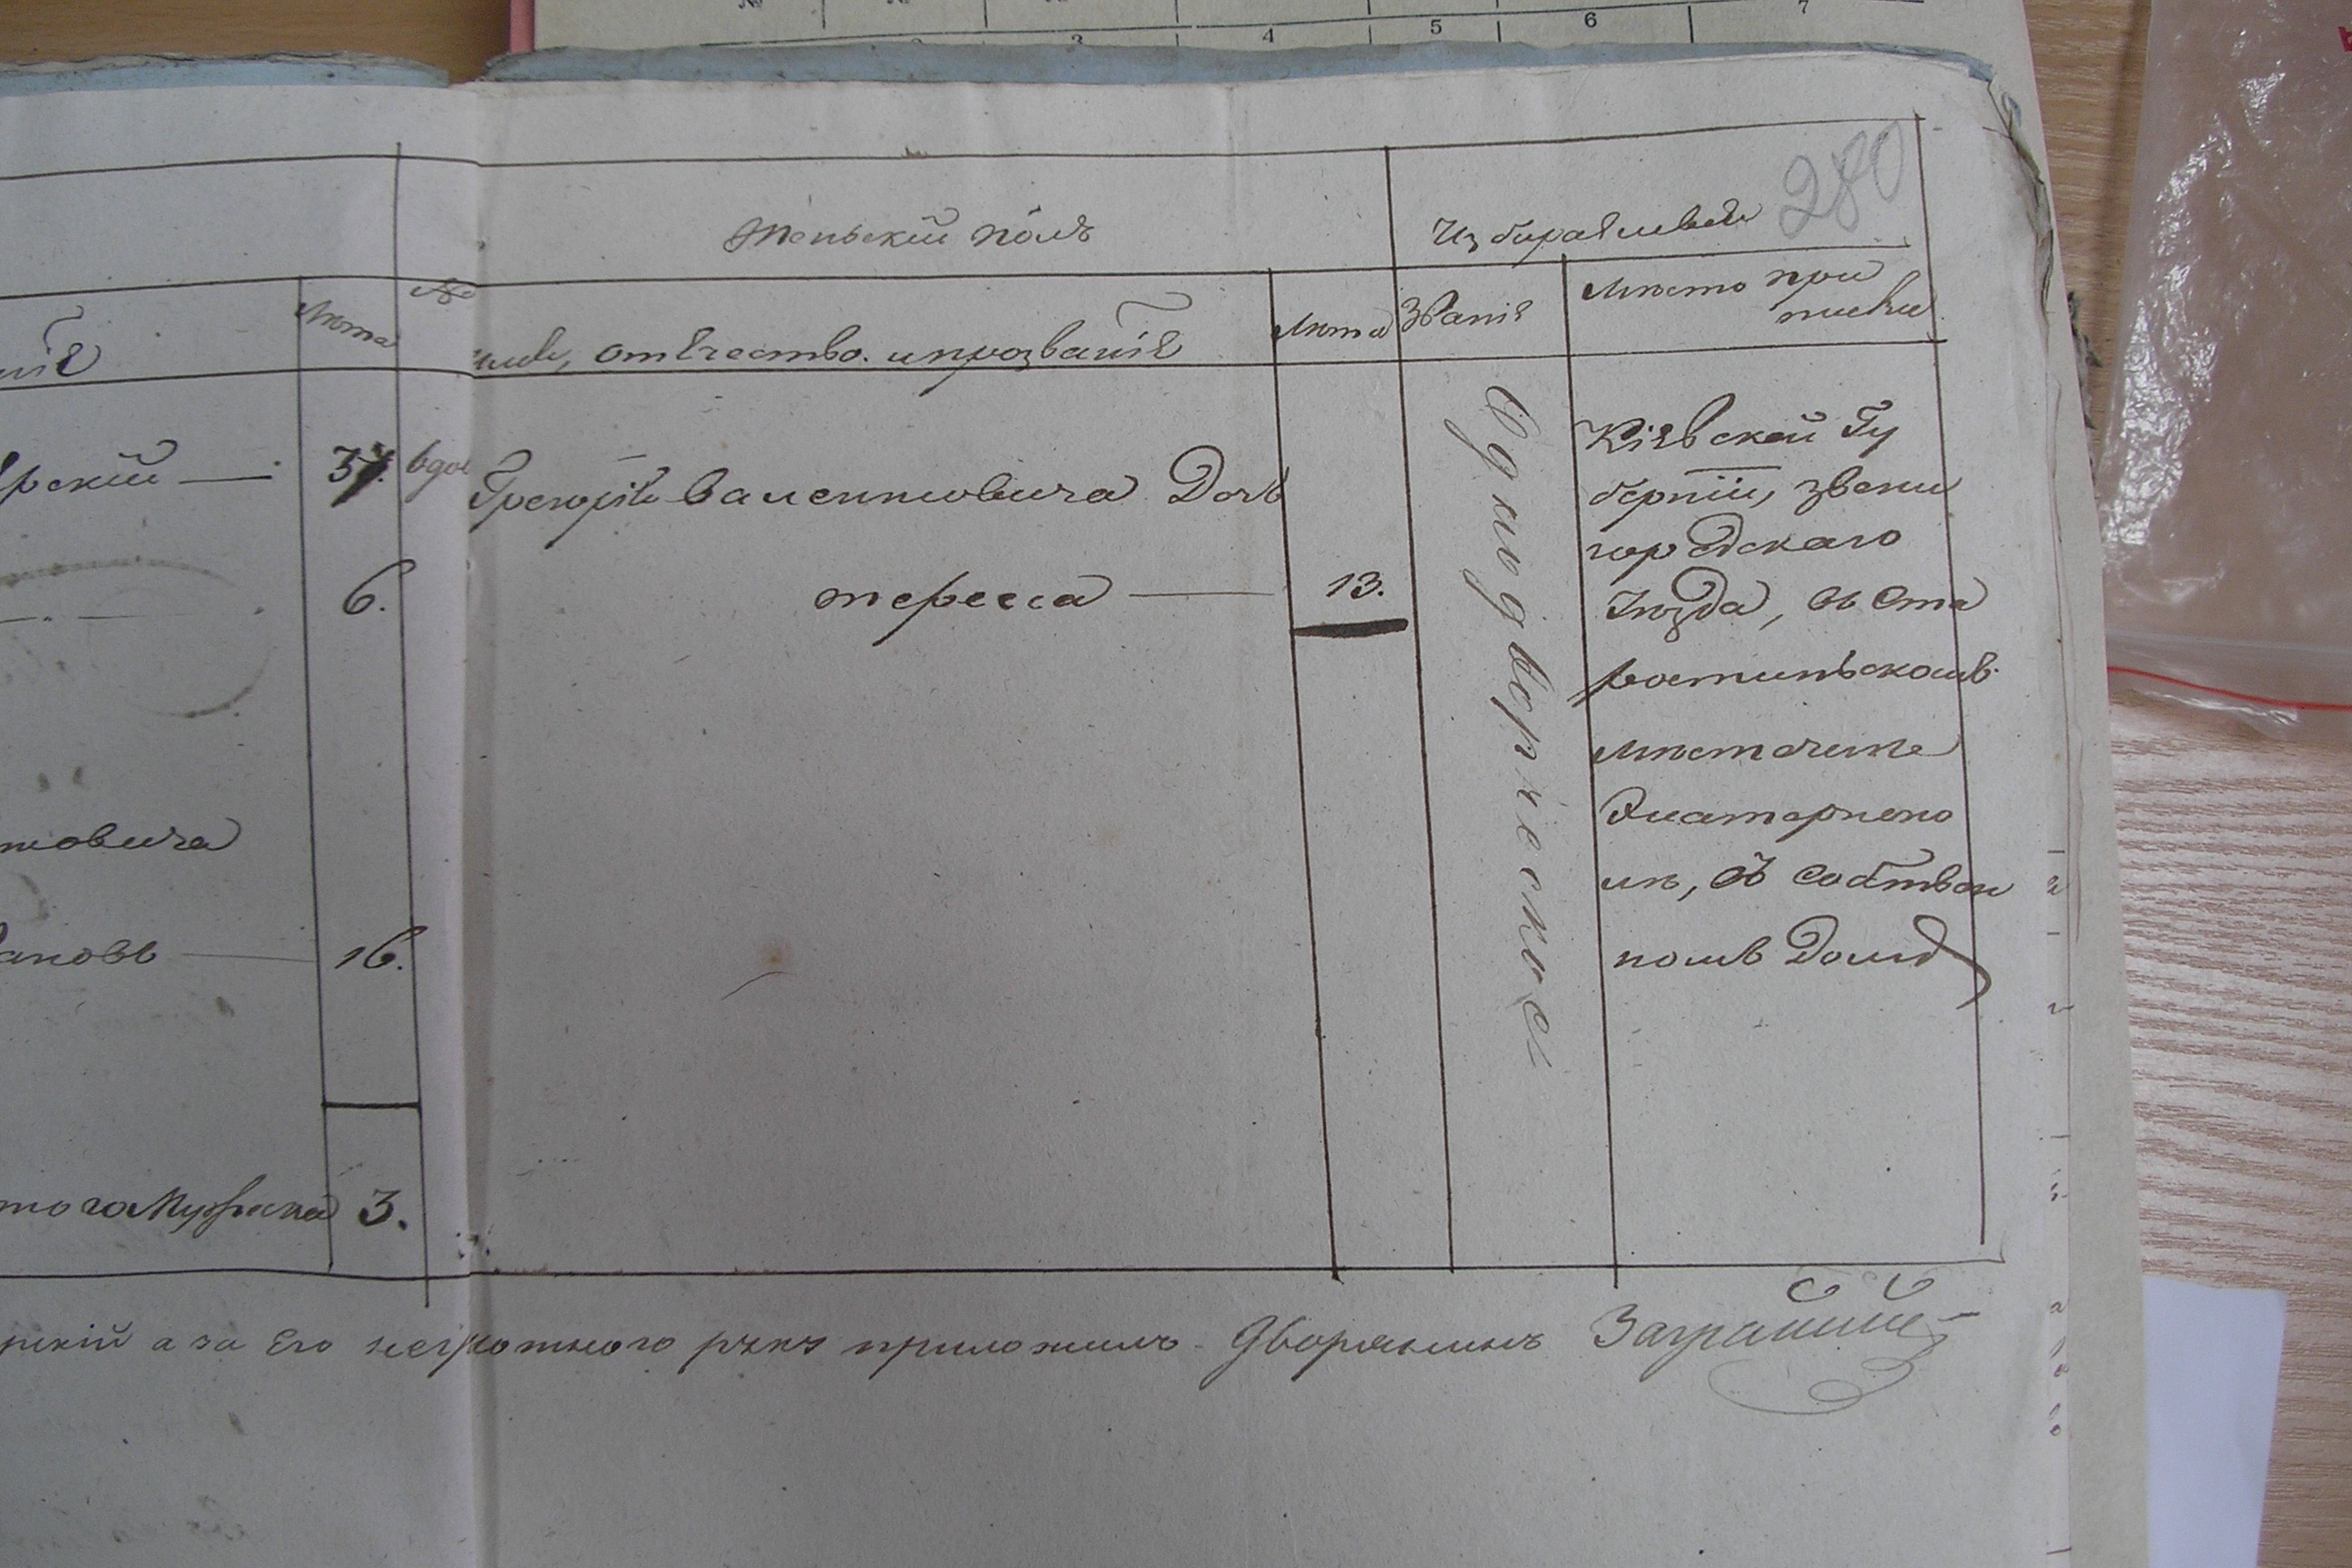 4 5 6 7
280
Женьскій полъ
Избираемые
Лѣта
№
отечество. и прозваніе
Лѣта
Званіе
Место при
писки
рскій — 37.
Грегорія Валентіовича Дочь
тересса — 13.
6.
Однодворческое
Кіевской Гу
берніи, звени
городскаго
уѣзда, въ Ста
ростиньскомъ
мѣстечке
Екатеринопо
лѣ, въ собствен
номъ Домѣ
товича
ановъ — 16.
того Мужеска 3.
рскій а за Его неграмотного руку приложилъ Дворянинъ